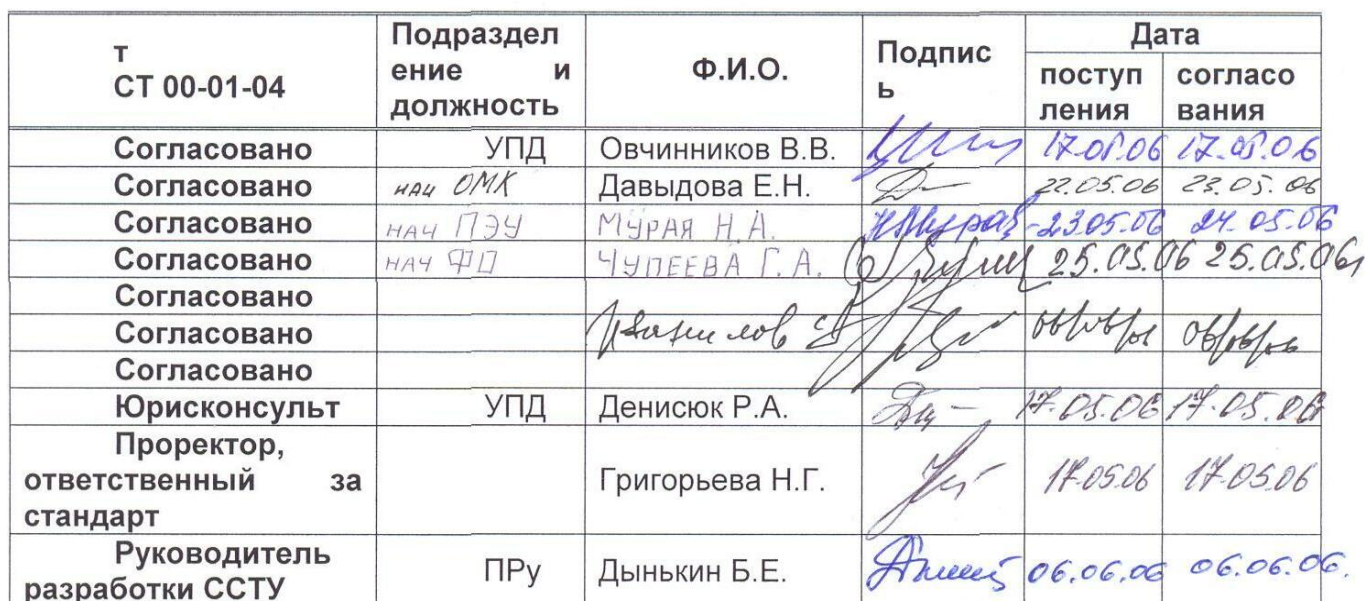 т
СТ 00-01-04
Подраздел
ение и
должность
Ф.И.О.
Подпис
ь
Дата
поступ
ления
согласо
вания
Согласовано УПД Овчинников В.В. 17.05.06 17.05.06
Согласовано нач ОМК Давыдова Е.Н. 22.05.06 23.05.06
Согласовано нач ПЭУ МУРАЯ Н.А. 23.05.06 24.05.06
Согласовано нач ФО ЧУПЕЕВА Г.А. 25.05.06 25.05.06
Согласовано
Согласовано
Согласовано
Юрисконсульт УПД Денисюк Р.А. 17.05.06 17.05.06
Проректор,
ответственный за
стандарт
Григорьева Н.Г. 17.05.06 17.05.06
Руководитель
разработки ССТУ
ПРу Дынькин Б.Е. 06.06.06 06.06.06.